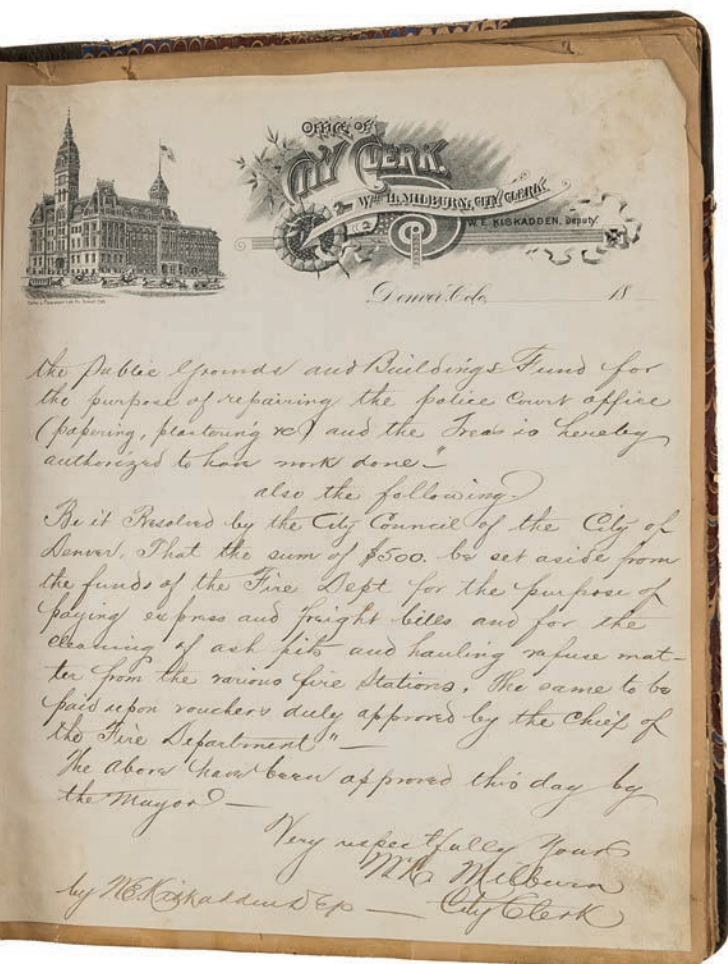 OFFICE OF
CITY CLERK.
Wm H. MILBURN, CITY CLERK.
W. E. KISKADDEN, Deputy.
Denver, Colo. 18
the Public Grounds and Buildings Fund for
the purpose of repairing the police Court office
(papering, plastering &c) and the Treas is hereby
authorized to have work done."
also the following
Be it Resolved by the City Council of the City of
Denver, That the sum of $500. be set aside from
the funds of the Fire Dept for the purpose of
paying express and freight bills and for the
cleaning of ash pits and hauling refuse mat-
ter from the various fire Stations, the same to be
paid upon vouchers duly approved by the Chief of
the Fire Department" —
The above have been approved this day by
the Mayor —
Very respectfully Yours
Milburn
by W.E. Kiskadden Dep — City Clerk